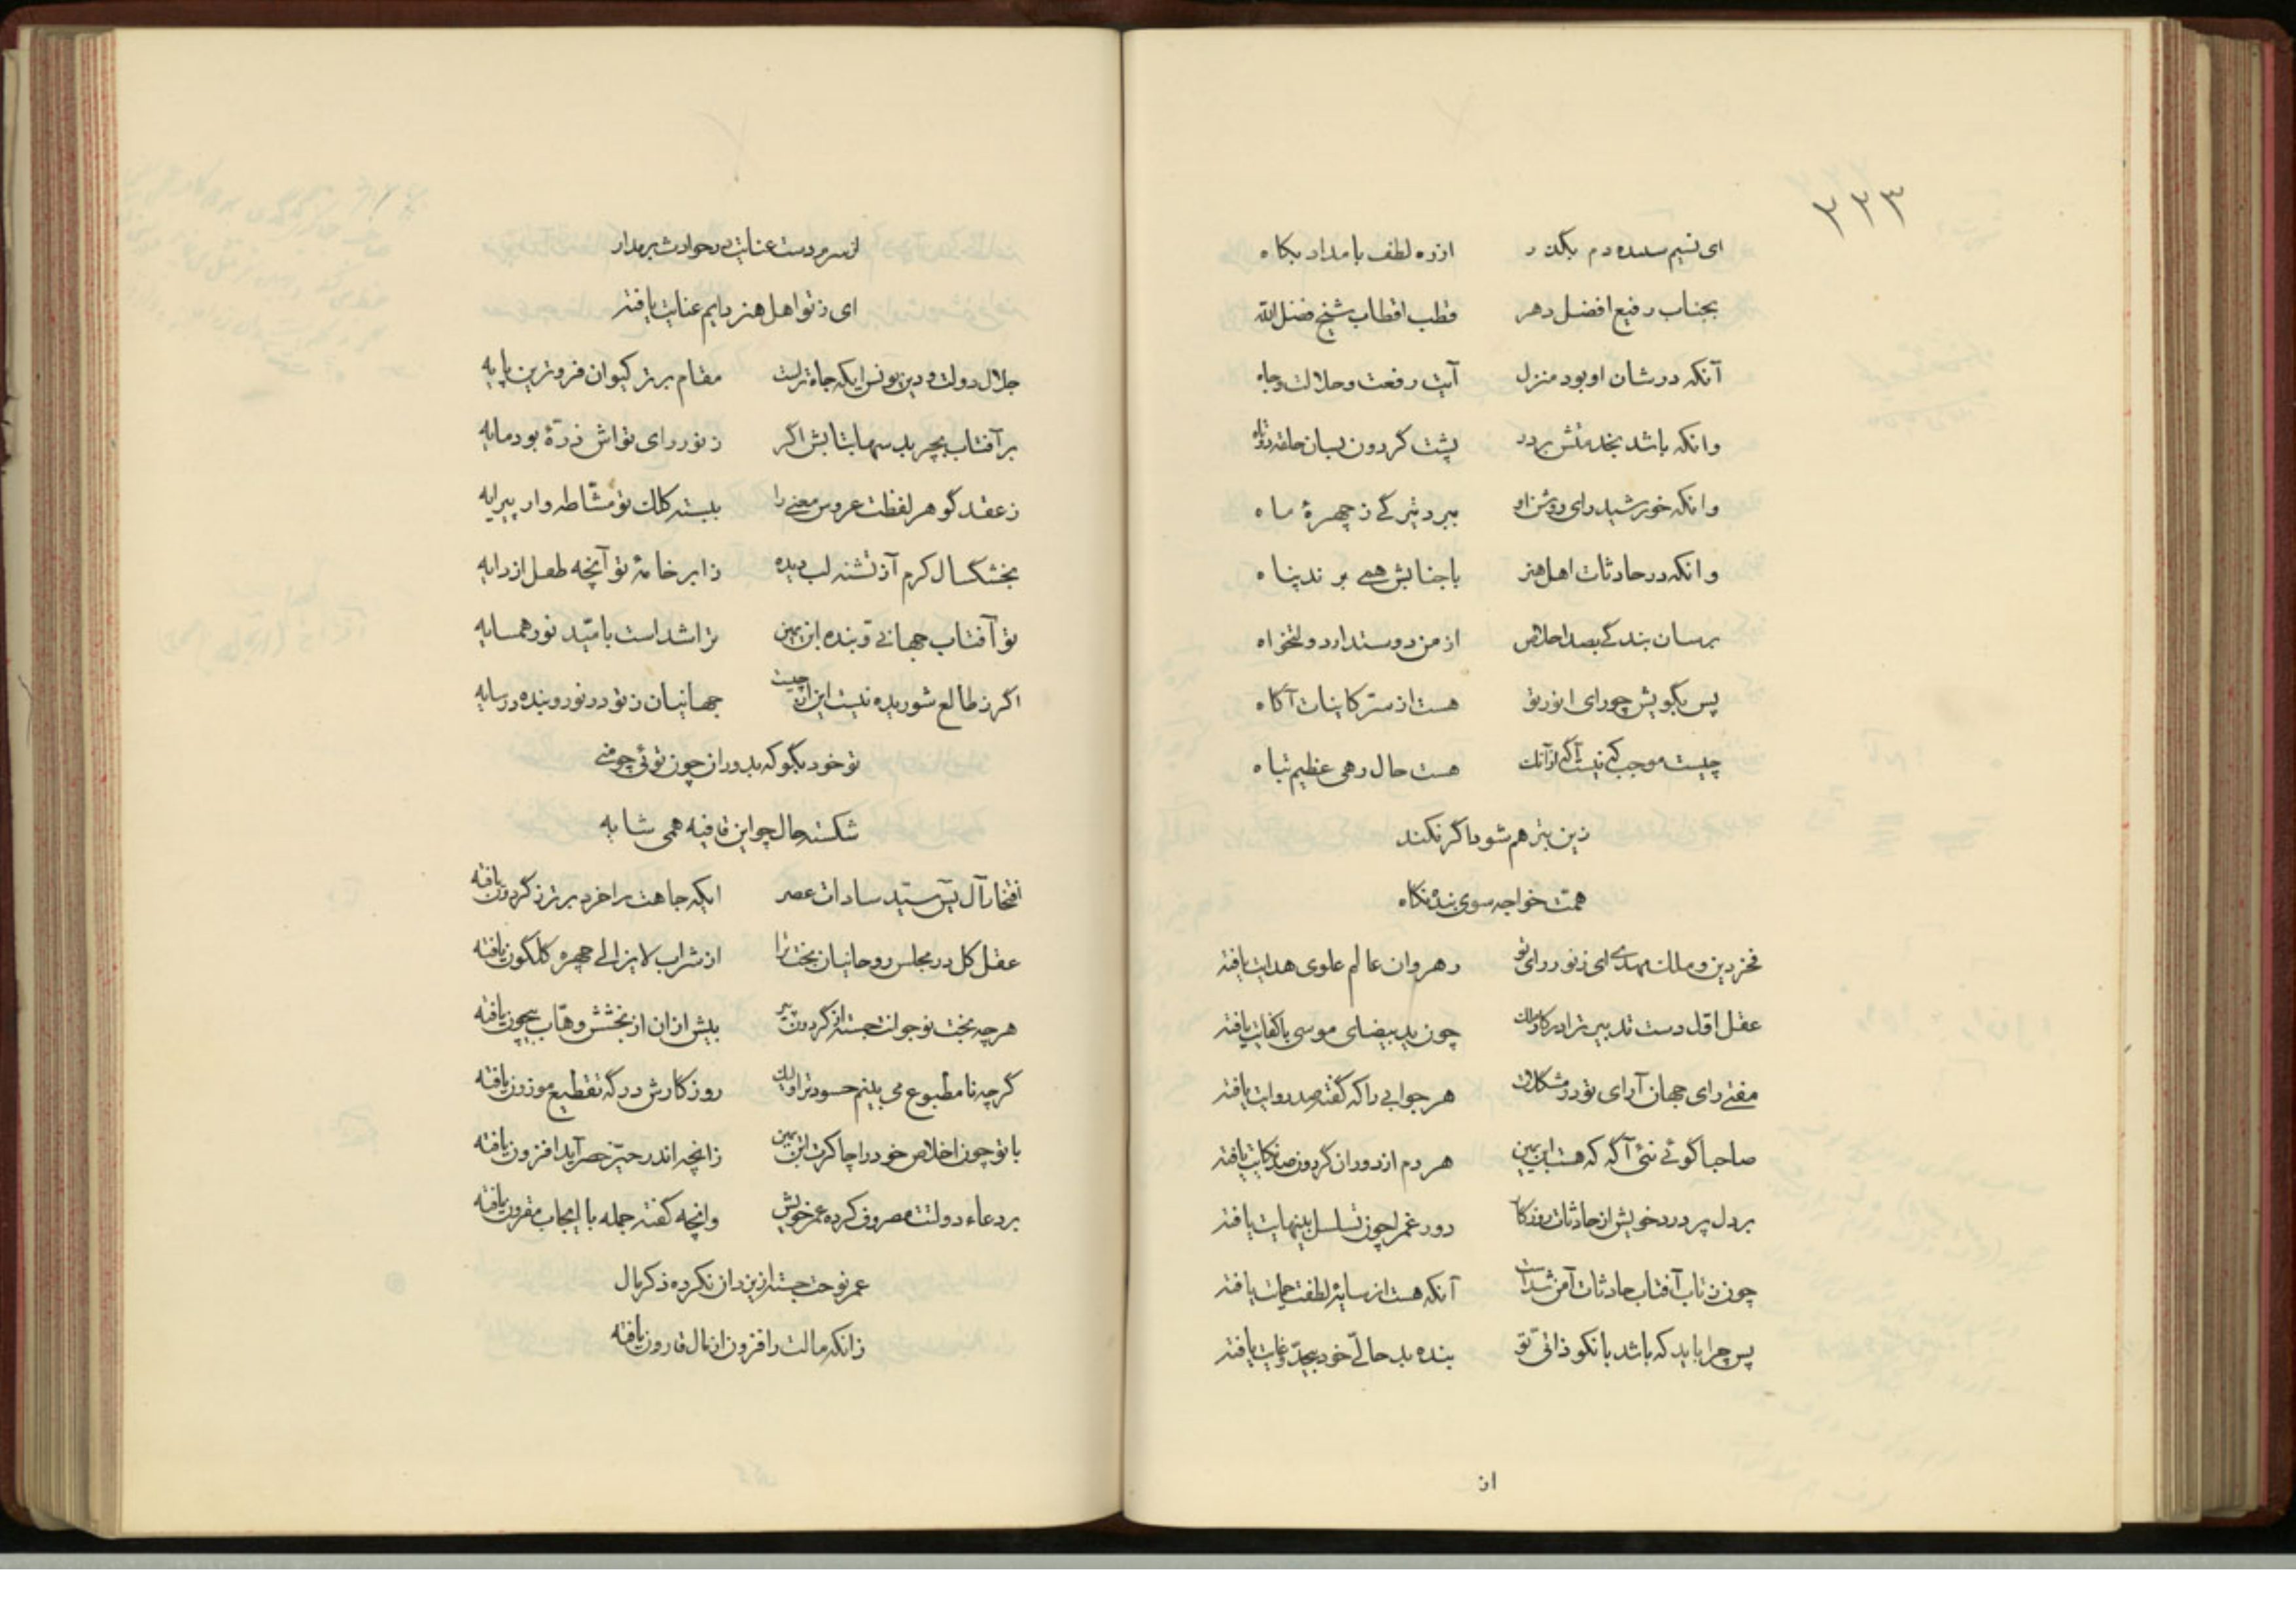 ۲۳۳
ای نسیم سپیده دم بگذر از ره لطف بامداد بگاه
بجناب رفیع افضل دهر قطب اقطاب شیخ فضل الله
آنکه در شان او بود منزل آیت رفعت و جلالت و جاه
وانکه باشد بخدمتش بر در پشت گردون بسان حلقه دوتاه
وانکه خورشید رای روشن او ببرد تیرگی ز چهرهٔ ماه
وانکه در حادثات اهل هنر با جنابش همی برند پناه
برسان بندگی بصد اخلاص از من دوستدار دولتخواه
پس بگویش چو رای انور تو هست از سر کاینات آگاه
چیست موجب که نیست آگه از آنک هست حال رهی عظیم تباه
زین بتر هم شود اگر نکند
همت خواجه سوی بنده نگاه
فخر دین و ملک مهدی ای ز نور رای تو رهروان عالم علوی هدایت یافته
عقل اول دست تدبیر ترا در کار ملک چون ید بیضای موسی با کفایت یافته
مفتی رای جهان آرای تو در مشکلات هر جوابی را که گفته صد روایت یافته
صاحبا گوئی نئی آگه که هست ابن یمین هر دم از دوران گردون صد نکایت یافته
بر دل پر درد خویش از حادثات روزگار دور غم را چون تسلسل بینهایت یافته
چون ز تاب آفتاب حادثات آمن شدست آنکه هست از سایهٔ لطفت حمایت یافته
پس چرا باید که باشد با نکو ذاتی تو بنده بد حالی خود بیحد و غایت یافته
از
از سرم دست عنایت در حوادث بر مدار
ای ز تو اهل هنر دایم عنایت یافته
جلال دولت و دین یونس ایکه جاه تراست مقام برتر کیوان فروترین پایه
بر آفتاب بچربد سها بتابش اگر ز نور رای تواش ذرهٔ بود مایه
ز عقد گوهر لفظت عروس معنی را ببسته کلک تو مشاطه وار پیرایه
بخشکسال کرم آز تشنه لب دیده ز ابر خامهٔ تو آنچه طفل از دایه
تو آفتاب جهانی و بنده ابن یمین تراشداست بامید نور همسایه
اگر ز طالع شوریده نیست این از چیست جهانیان ز تو در نور و بنده در سایه
تو خود بگو که بدوران چون توئی چو منی
شکسته حال چو این قافیه همی شایه
افتخار آل یس سید سادات عصر ایکه جاهت را خرد برتر ز گردون یافته
عقل کل در مجلس روحانیان بخت ترا از شراب لایزالی چهره گلگون یافته
هر چه بخت نوجوانت جسته از گردون پیر بیش از ان از بخشش وهاب بیچون یافته
گرچه نامطبوع می بینم حسودت را ولیک روزگارش در گه تقطیع موزون یافته
با تو چون اخلاص خود را چاکرت ابن یمین زانچه اندر حیز حصر آید افزون یافته
بر دعاء دولتت مصروف کرده عمر خویش وانچه گفته جمله با ایجاب مقرون یافته
عمر نوحت جسته از یزدان نکرده ذکر مال
زانکه مالت را فزون از مال قارون یافته